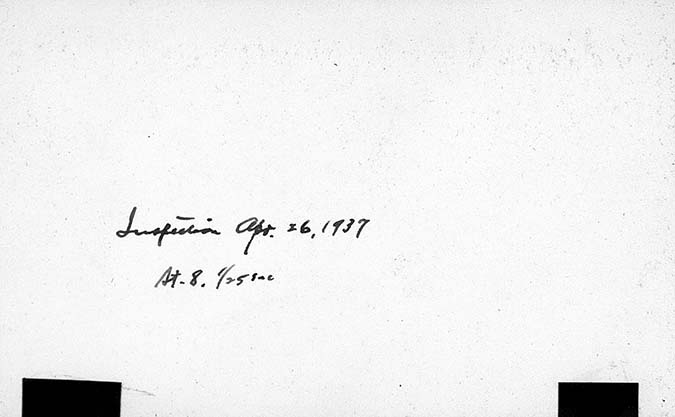 Inspection Apr. 26, 1937
At. 8. 1/25 sec